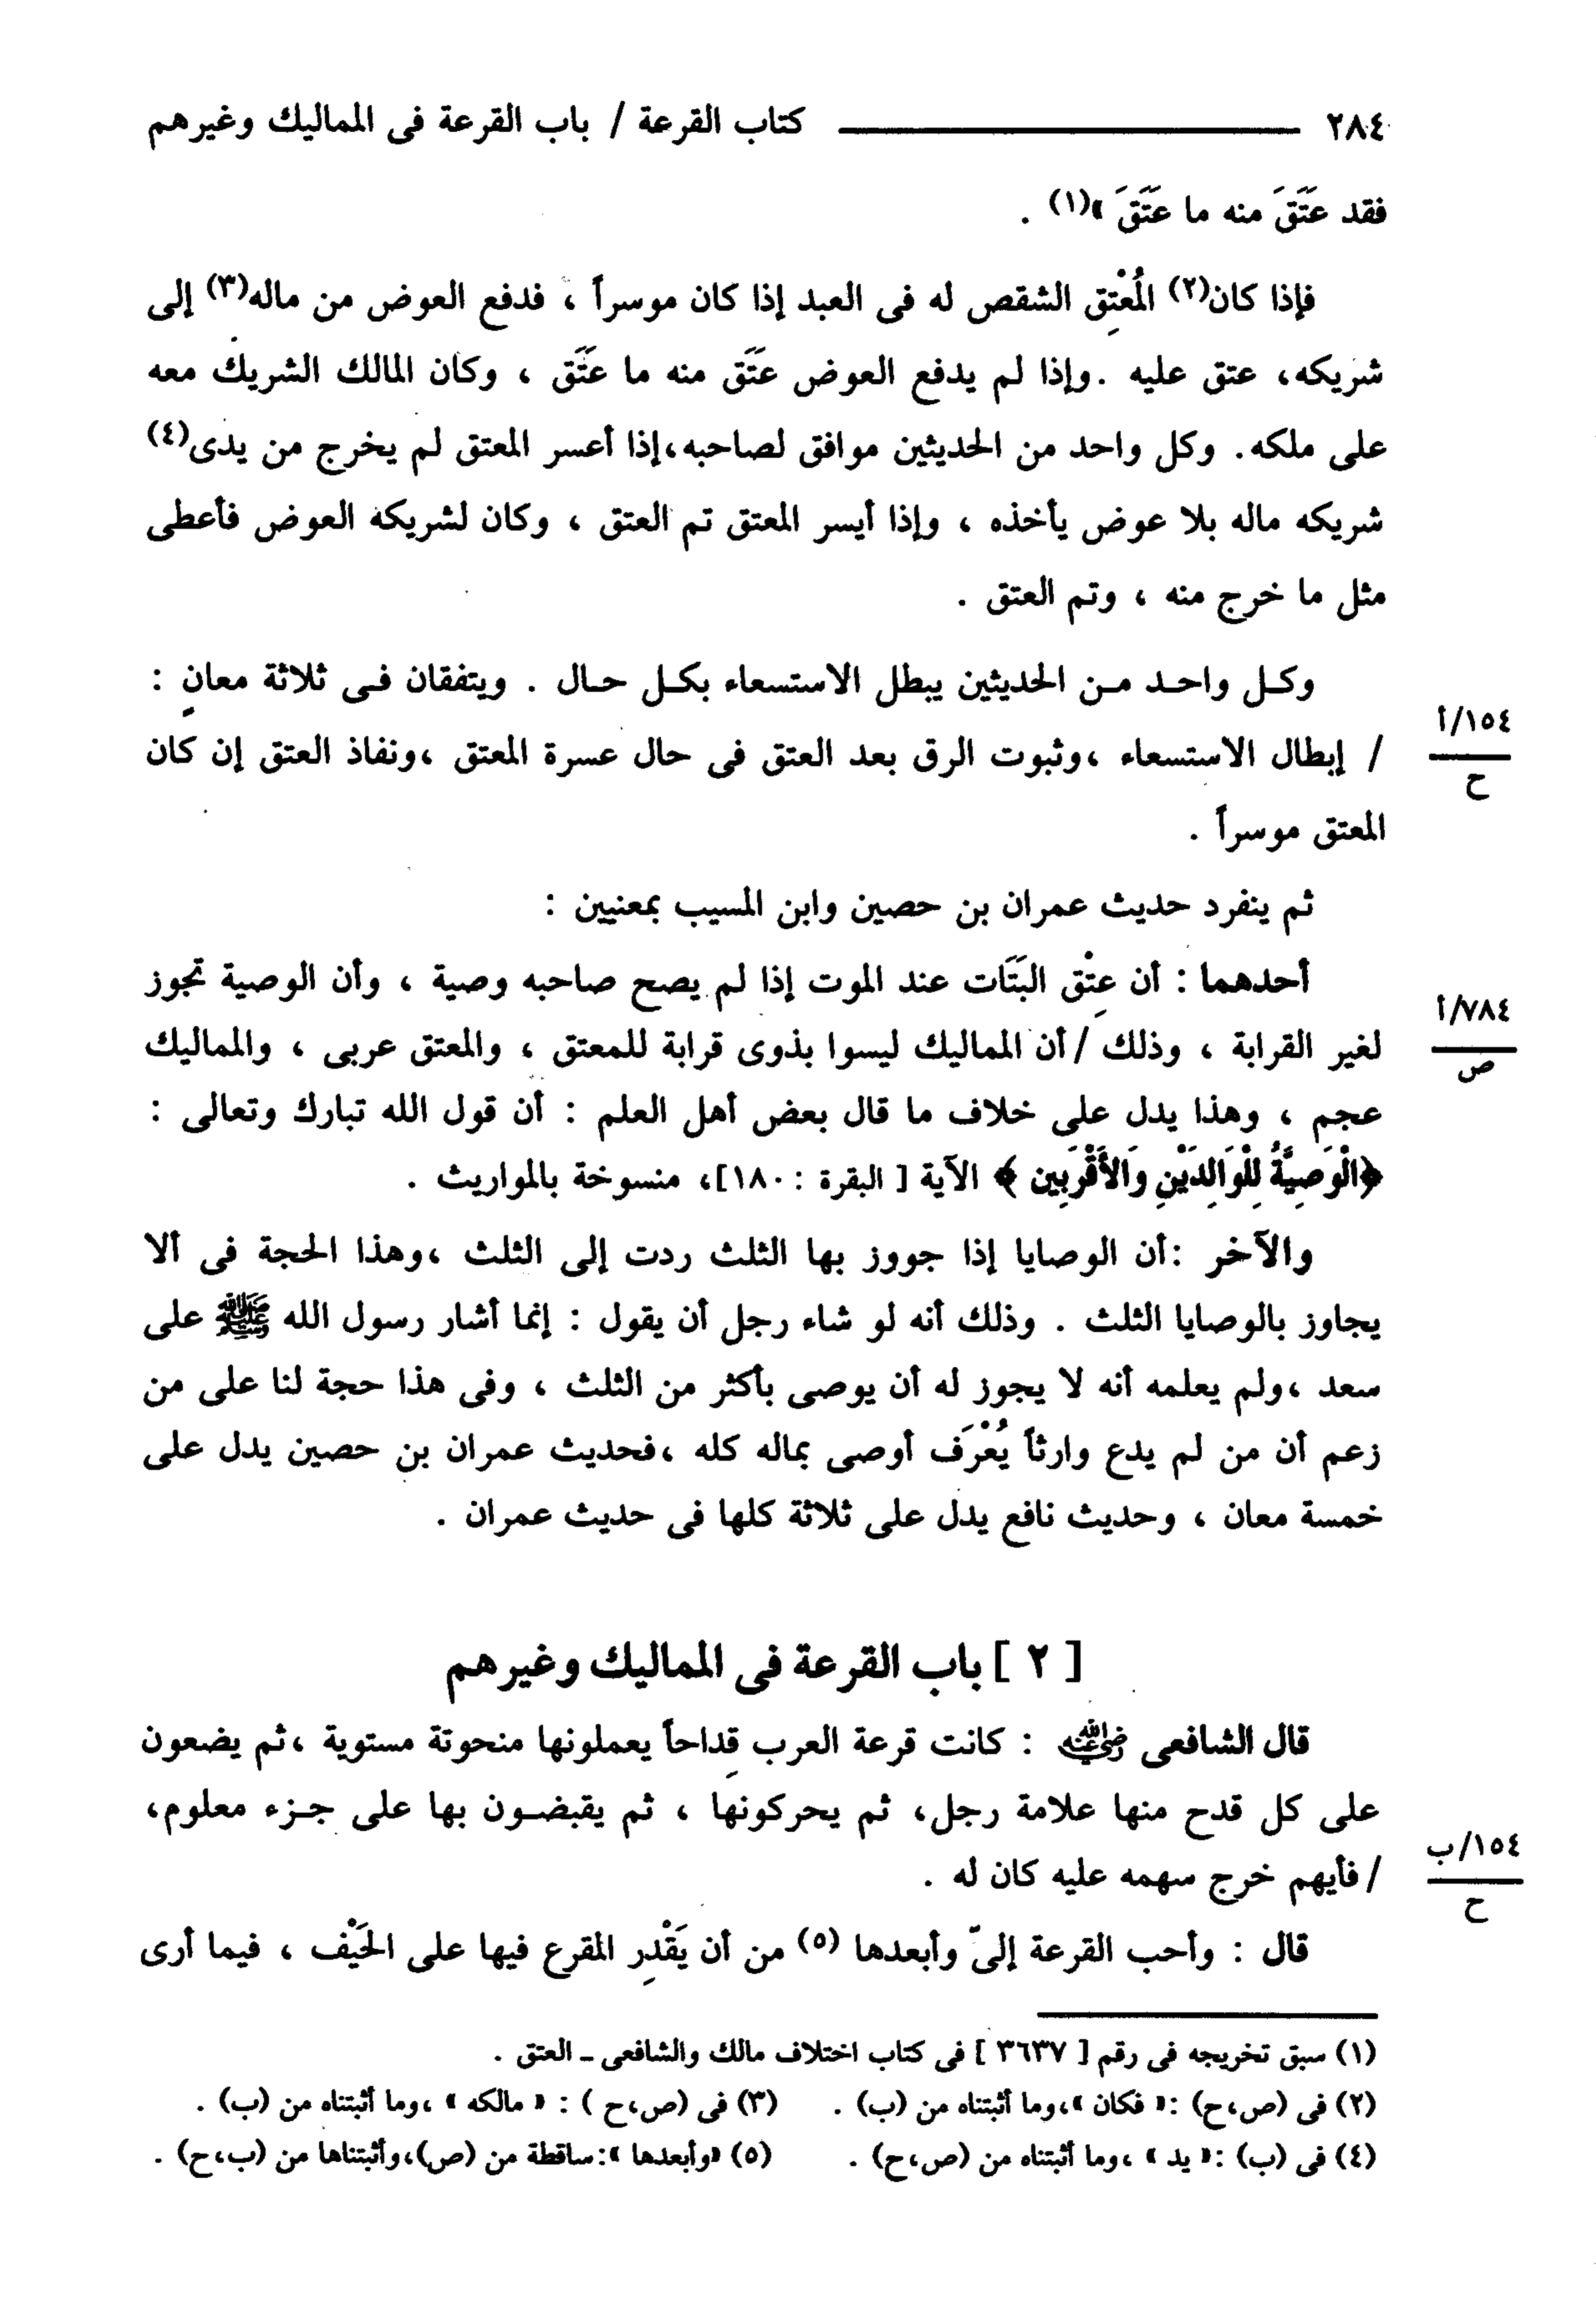 ٢٨٤ كتاب القرعة / باب القرعة فى المماليك وغيرهم
فقد عَتَقَ منه ما عَتَقَ »(١) .
فإذا كان(٢) المُعْتِق الشقص له فى العبد إذا كان موسراً ، فدفع العوض من ماله(٣) إلى
شريكه، عتق عليه . وإذا لم يدفع العوض عَتَق منه ما عَتَق ، وكان المالك الشريك معه
على ملكه. وكل واحد من الحديثين موافق لصاحبه،إذا أعسر المعتق لم يخرج من يدى(٤)
شريكه ماله بلا عوض يأخذه ، وإذا أيسر المعتق تم العتق ، وكان لشريكه العوض فأعطى
مثل ما خرج منه ، وتم العتق .
وكل واحد من الحديثين يبطل الاستسعاء بكل حال . ويتفقان فى ثلاثة معانٍ :
١٥٤/أ
ح
/ إبطال الاستسعاء ،وثبوت الرق بعد العتق فى حال عسرة المعتق ،ونفاذ العتق إن كان
المعتق موسراً .
ثم ينفرد حديث عمران بن حصين وابن المسيب بمعنيين :
أحدهما : أن عِتْق البَتَات عند الموت إذا لم يصح صاحبه وصية ، وأن الوصية تجوز
٧٨٤/أ
ص
لغير القرابة ، وذلك / أن المماليك ليسوا بذوى قرابة للمعتق ، والمعتق عربى ، والمماليك
عجم ، وهذا يدل على خلاف ما قال بعض أهل العلم : أن قول الله تبارك وتعالى :
﴿الْوَصِيَّةُ لِلْوَالِدَيْنِ وَالأَقْرَبِين ﴾ الآية [ البقرة : ١٨٠]، منسوخة بالمواريث .
والآخر :أن الوصايا إذا جووز بها الثلث ردت إلى الثلث ،وهذا الحجة فى ألا
يجاوز بالوصايا الثلث . وذلك أنه لو شاء رجل أن يقول : إنما أشار رسول الله ﷺ على
سعد ،ولم يعلمه أنه لا يجوز له أن يوصى بأكثر من الثلث ، وفى هذا حجة لنا على من
زعم أن من لم يدع وارثاً يُعْرَف أوصى بماله كله ،فحديث عمران بن حصين يدل على
خمسة معان ، وحديث نافع يدل على ثلاثة كلها فى حديث عمران .
[ ٢ ] باب القرعة فى المماليك وغيرهم
قال الشافعى رضي الله عنه : كانت قرعة العرب قِداحاً يعملونها منحوتة مستوية ،ثم يضعون
على كل قدح منها علامة رجل، ثم يحركونها ، ثم يقبضون بها على جزء معلوم،
١٥٤/ب
ح
/ فأيهم خرج سهمه عليه كان له .
قال : وأحب القرعة إلىّ وأبعدها (٥) من أن يَقْدِر المقرع فيها على الحَيْف ، فيما أرى
(١) سبق تخريجه فى رقم [ ٣٦٣٧ ] فى كتاب اختلاف مالك والشافعى ـ العتق .
(٢) فى (ص،ح) :« فكان »،وما أثبتناه من (ب) . (٣) فى (ص،ح ) : « مالكه » ،وما أثبتناه من (ب) .
(٤) فى (ب) :« يد » ،وما أثبتناه من (ص،ح) . (٥) «وأبعدها »:ساقطة من (ص)،وأثبتناها من (ب،ح) .